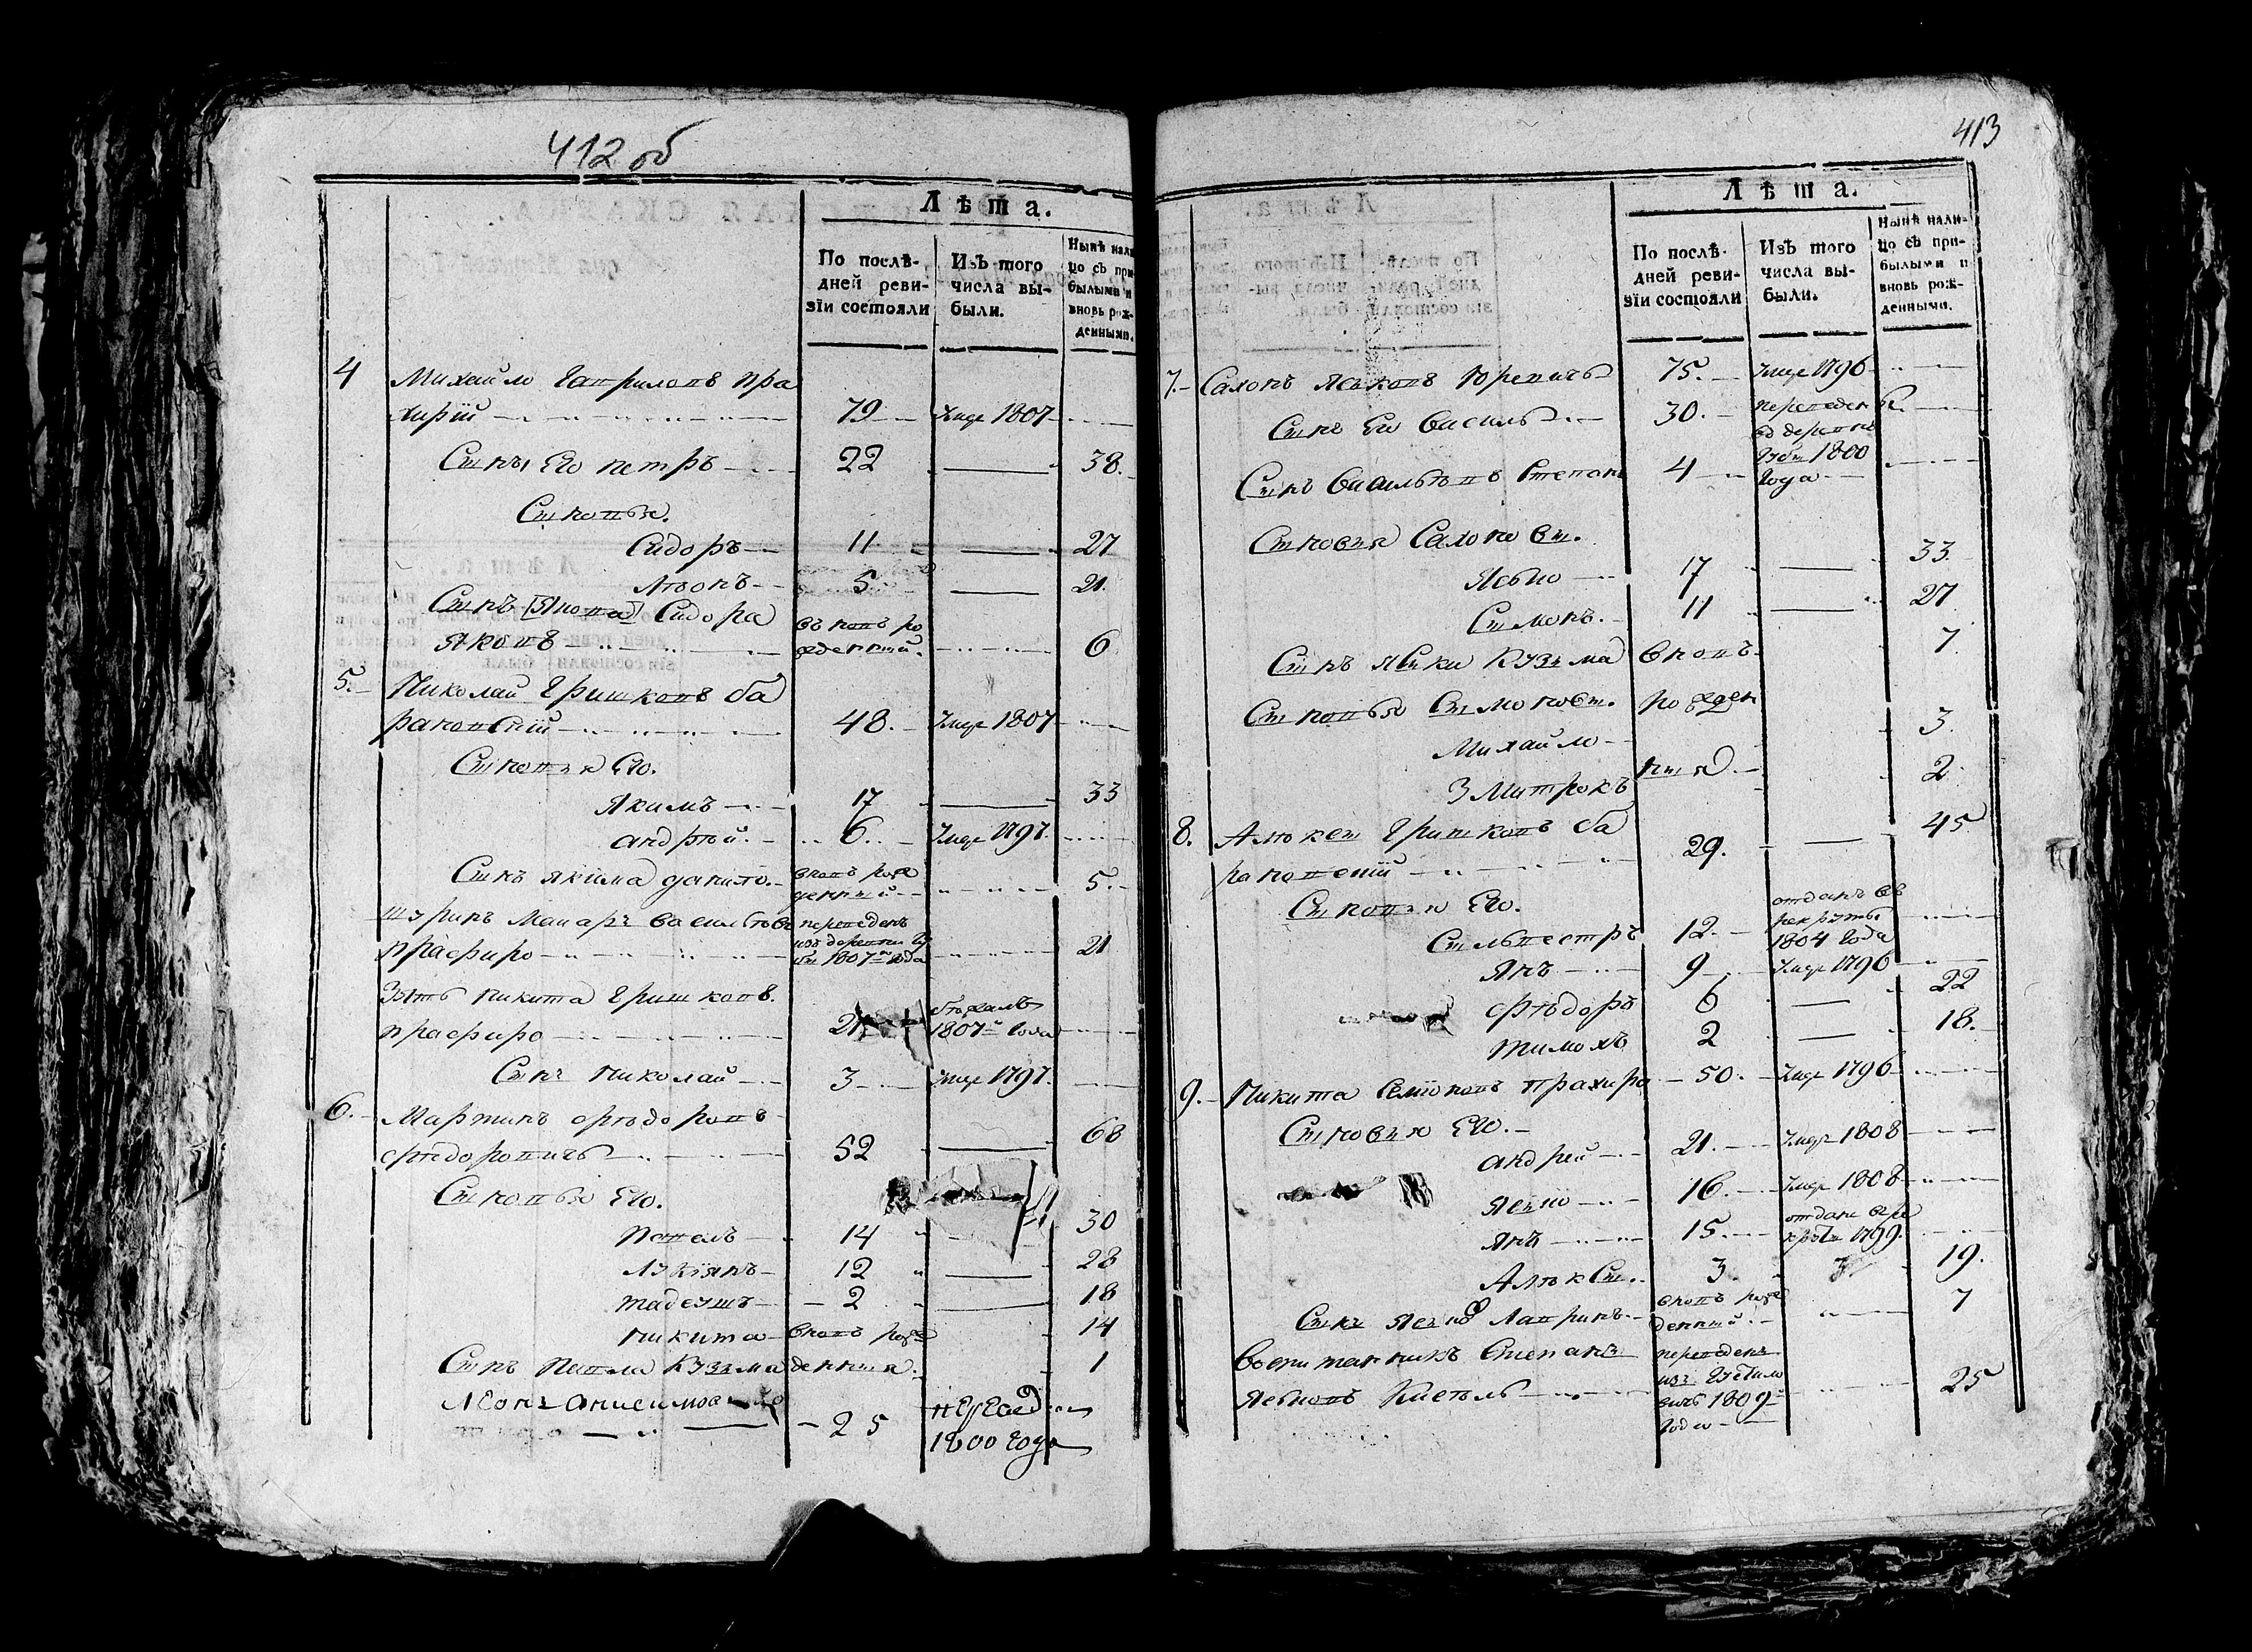 412 об
Лѣта.
По послѣдней ревизіи состояли
Изъ того числа выбыли.
Нынѣ нали-
цо съ при-
былыми и
вновь рож-
денными.
4 Михайло Гавриловъ Пра
хирій 79 Умре 1807
Сынъ Его Петръ 22 38.
Сыновья.
Сидоръ 11 27
Лѣонъ 5 21.
Сынъ Сидора
Яковъ вновь рожденный. 6
5. Николай Гришковъ Ба
рановскій 48. Умре 1807
Сыновья Его.
Якимъ 17 33
Андрѣй. 6. Умре 1797.
Сынъ Якима Данило. вновь рожденный 5.
Шуринъ Макаръ Васильѣвъ переведенъ
изъ деревни
Прафиро 1807 года 21
Зять Никита Гришковъ.
Прафиро 21 бѣжалъ 1807 Года
Сынъ Николай 3 Умре 1797.
6. Мартинъ Ѳѣдоровъ
Ѳѣдоровичъ 52 68
Сыновья Его.
Павелъ 14 30
Лукіянъ 12 28
Тадеушъ 2 18
Никита вновь рож 14
Сынъ Павла Кузьма денныя. 1
Леонъ Анисимов
25 1800 Года
413
Лѣта.
По послѣ-
дней реви-
зіи состояли
Изъ того
числа вы-
были.
Нынѣ нали-
цо съ при-
былыми и
вновь рож-
денными.
7. Сахонъ Яськовъ Юревичъ 75. Умре 1796
Сынъ Его Василь 30. переведены
въ деревню
Сынъ Васильѣвъ Степанъ 4 1800
Года
Сыновья Сахоновы.
Ясько 17 33.
Сымонъ. 11 27
Сынъ Яськи Кузьма вновь 7.
Сыновья Сымоновы. рожден
Михайло 3.
Змитрокъ ныя. 2.
8. Алѣксы Гришковъ Ба
рановскій 29. 45
Сыновья Его.
Сыльвестръ 12. отданъ въ
рекруты
1804 Года
Янъ 9 Умре 1796
Ѳѣдоръ 6 22
Тимохъ 2 18.
9. Никита Семіоновъ Прахиро 50. Умре 1796
Сыновья Его.
Андрей 21. Умре 1808
Ясько 16. Умре 1808
Янъ 15. отданъ въ ре
круты 1799.
Алѣксы. 3. 19.
Сынъ Ясько Лавринъ. вновь рож
денный. 7
Воспитанникъ Степанъ переведенъ
Яськовъ Кисѣль изъ
1809
года 25